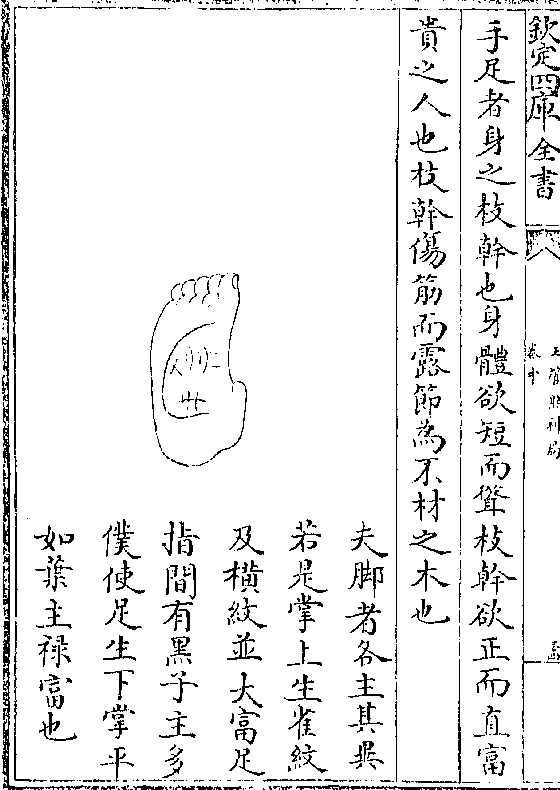 欽定四庫全書
玉管照神局
卷中
手足者身之枝幹也身體欲短而聳枝幹欲正而直富
貴之人也枝幹傷筋而露節為不材之木也
夫脚者各主其異
若是掌上生雀紋
及橫紋並大富足
指間有黑子主多
僕使足生下掌平
如葉主祿富也